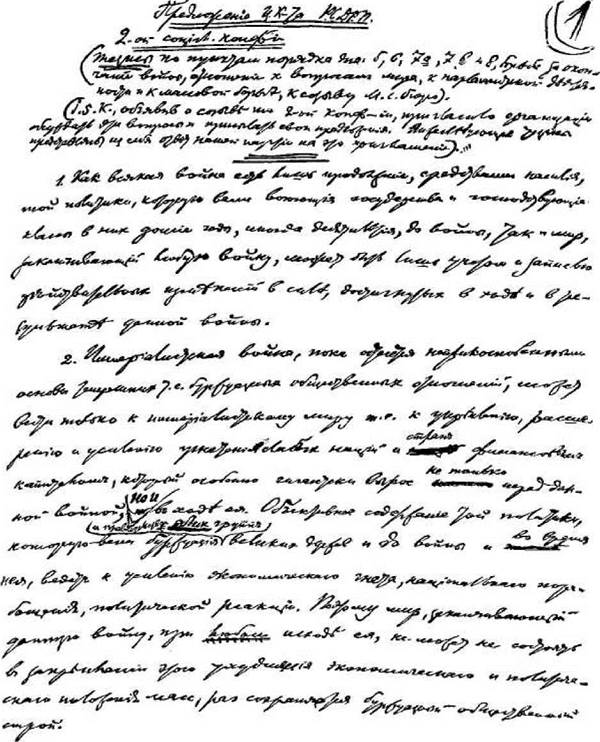 Предложенiе Ц.К-та Р.С.Д.Р.П. 1
2-ой социал. конф-iи
(Тезисы по пунктам порядка дня: 5, 6, 7а, 7 b и 8, борьба за окон-
чанiе войны, отношенiе к вопросам мира, к парламентской деятель-
ности и к массовой борьбѣ, к созыву М. С. Бюро).
(I.S.K., объявляя о созывѣ 2-ой конф-iи, пригласила организацiи
обсудить эти вопросы и прислать свои предложенiя. Нижеслѣдующiе тезисы
представляют из себя отвѣт нашей партiи на это приглашенiе).
1. Как всякая война есть лишь продолженiе, средствами насилiя,
той политики, которую вели воюющiя государства и господствующiе
классы в них долгiе годы, иногда десятилѣтiя, до войны, так и мир,
заканчивающiй любую войну, может быть лишь учетом и записью
дѣйствительных измѣненiй в силѣ, достигнутых в ходѣ и в ре-
зультатѣ данной войны.
2. Имперiалистская война, пока остаются неприкосновенными
основы теперешних, т.е. буржуазных общественных отношенiй, может
вести только к имперiалистскому миру т.е. к упроченiю, расши-
ренiю и усиленiю угнетенiя слабых нацiй и стран финансовым
капиталом, который особенно гигантски вырос не только перед дан-
ной войной, но и в ходѣ ея. Объективное содержанiе той политики,
которую вели буржуазiя (и правящiе группы) великих держав и до войны и во время
нея, ведет к усиленiю экономическаго гнета, нацiональнаго пора-
бощенiя, политической реакцiи. Поэтому мир, заканчивающiй
данную войну, при исходѣ ея, не может не состоять
в закрѣпленiи этого ухудшенiя экономическаго и политиче-
скаго положенiя масс, раз сохраняется буржуазный общественный
строй.